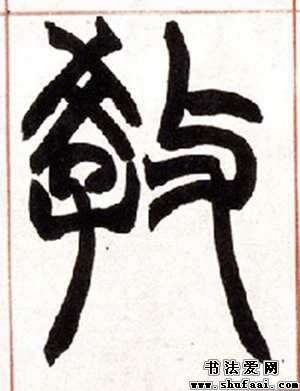 教
书法爱网
www.shufaai.com